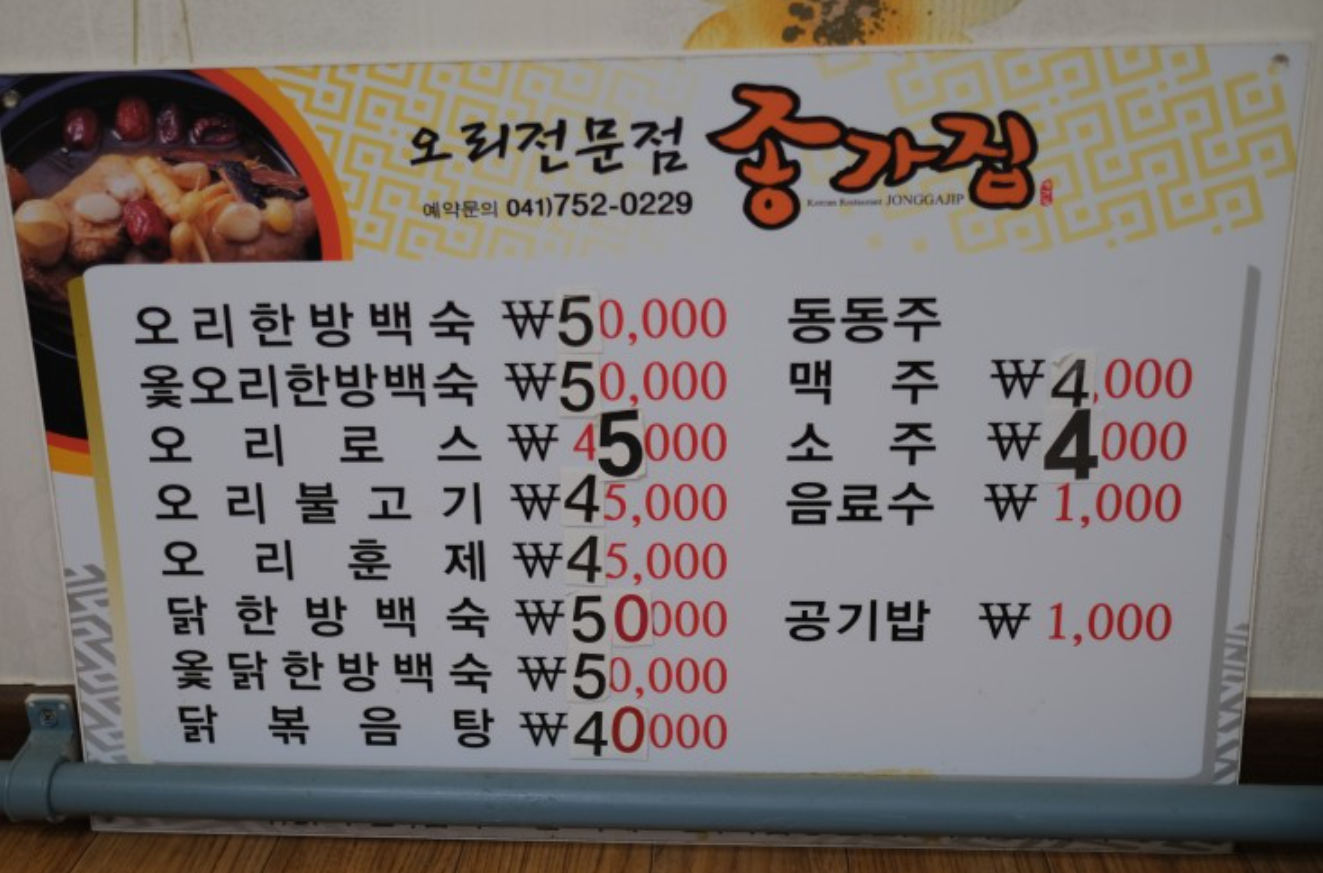 오리전문점 종가집
예약문의 041)752-0229
Korean Restaurant JONGGAJIP
오리한방백숙 ₩50,000
옻오리한방백숙 ₩50,000
오리로스 ₩45,000
오리불고기 ₩45,000
오리훈제 ₩45,000
닭한방백숙 ₩50000
옻닭한방백숙 ₩50,000
닭볶음탕 ₩40000
동동주
맥주 ₩4,000
소주 ₩4000
음료수 ₩1,000
공기밥 ₩1,000